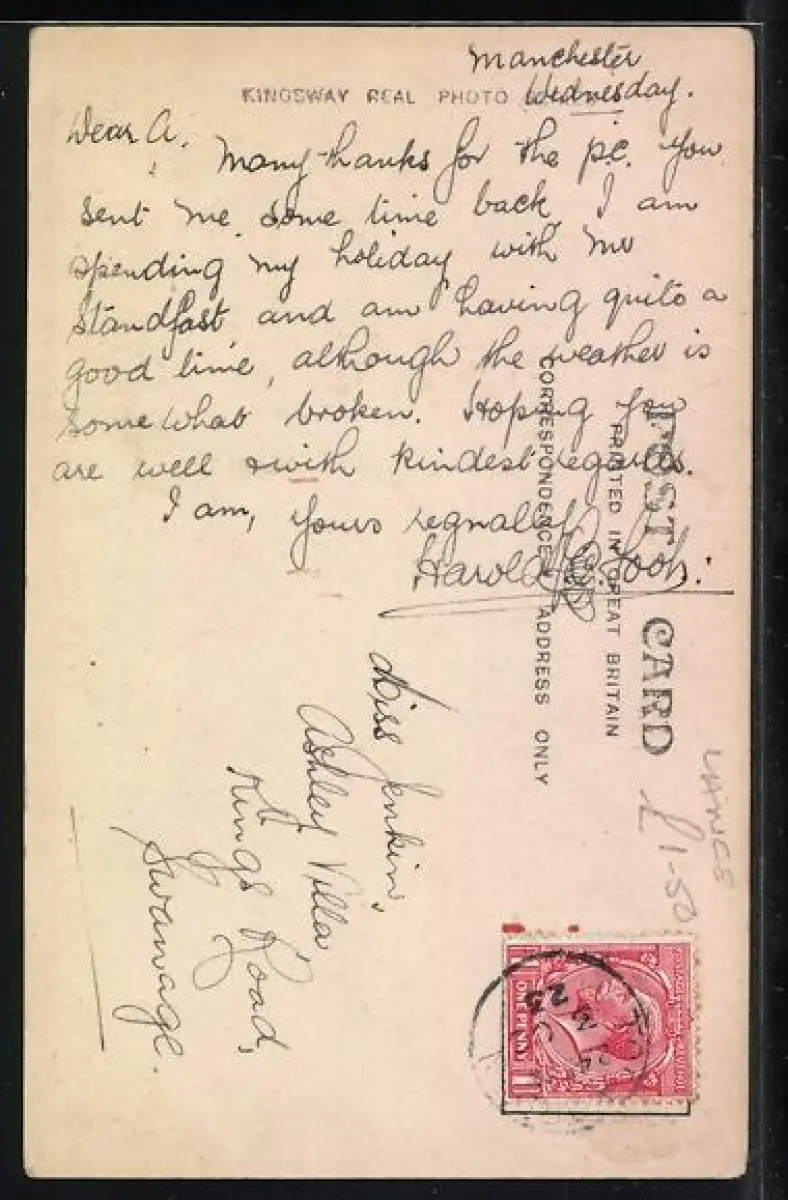 Manchester
Wednesday.
KINGSWAY REAL PHOTO
Dear A.
Many thanks for the p.c. you
sent me some time back I am
spending my holiday with Mr
Standfast, and am having quite a
good time, although the weather is
somewhat broken. Hoping you
are well & with kindest regards.
I am, yours
Harold
POST CARD
PRINTED IN GREAT BRITAIN
CORRESPONDENCE ADDRESS ONLY
Miss Jenkins,
Ashley Villa
Kings Road,
Swanage.
LANCS
£1-50
ONE PENNY
24
25